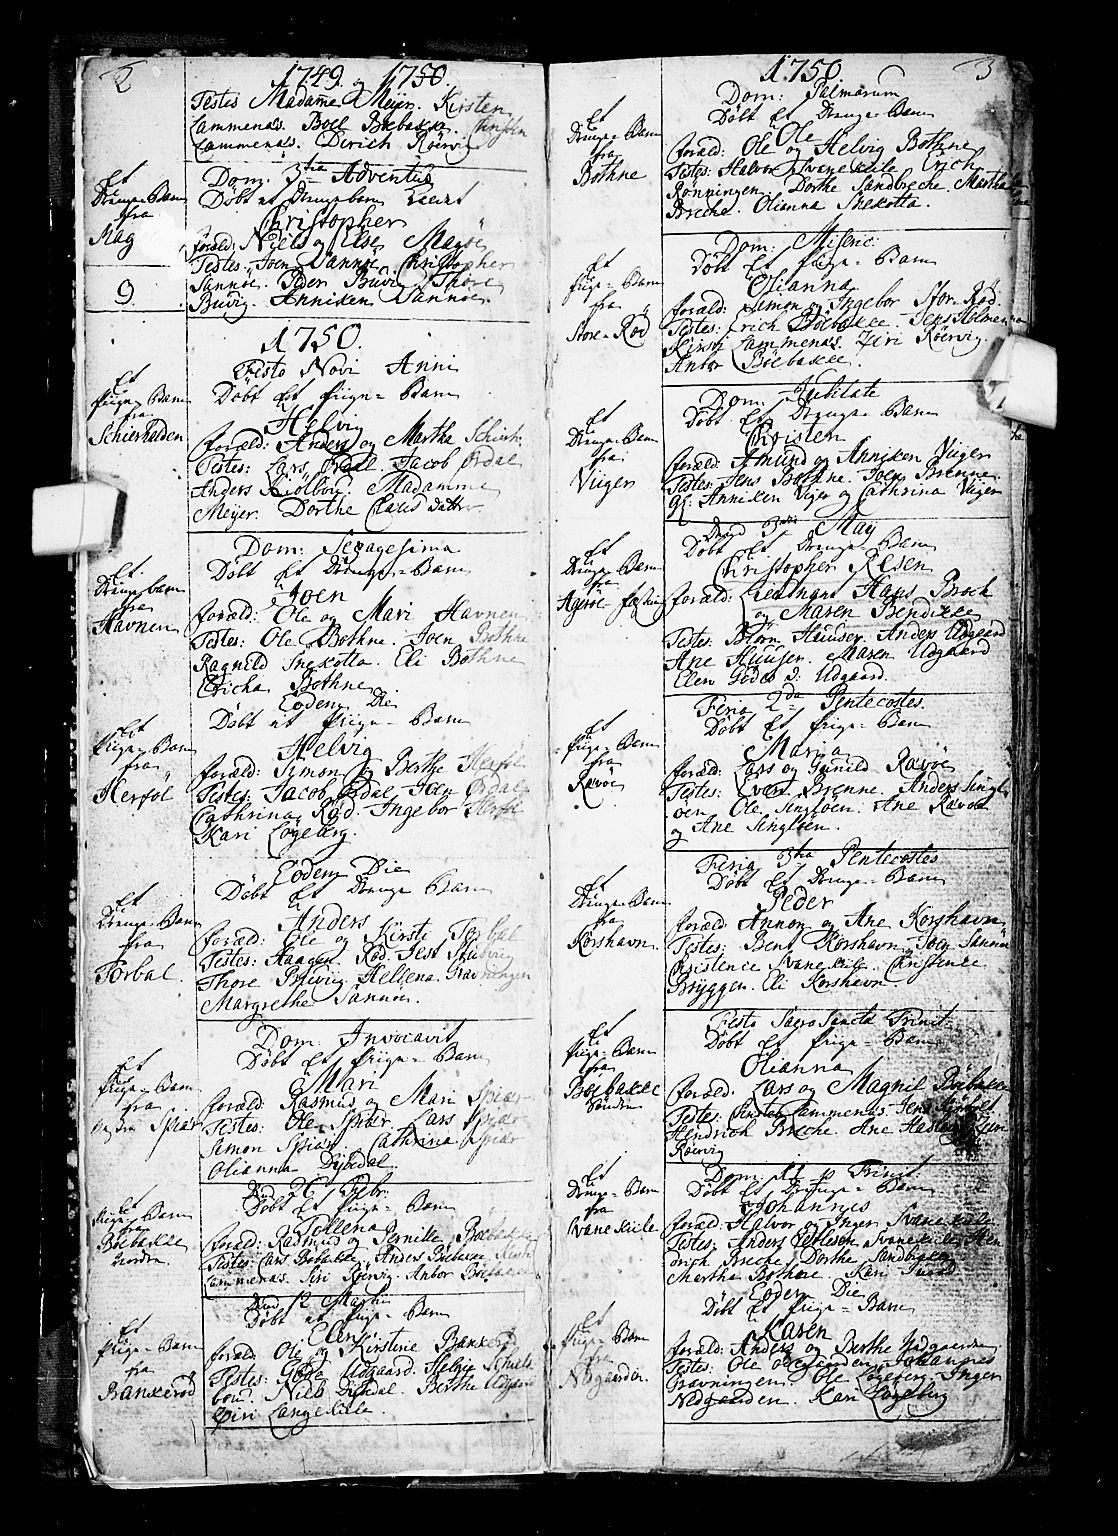 2
1749. og 1750.
Testes Madame Meÿer. Kirsten
Lammenæs. Boel Bæbakke.
Lammenæs. Dirich Röervig
Et
Drenge-Barn
fra
Mag
Dom. 3tia Adventus
Döbt et Drengebarn
Christopher
foræld: Niels og Else Magöe
Testes: Joen Sannöe Christopher
Sannöe. Peder Buvig. Thore
Buvig. Anniken Sannöe.
9.
1750.
Et
Piige-Barn
fra
Schierhalden
Festo Novi Anni
Döbt Et Piige-Barn
Helvig
foræld: Anders og Martha
Testes: Lars Ördal. Jacob Ördal
Anders Kiölbou. Madamme
Meÿer. Dorthe Claus datter.
Et
Drengebarn
fra
Havnen
Dom: Sexagesima
Döbt Et Drenge-Barn
Joen
foræld: Ole og Mari Havnen
Testes: Ole Bothne. Joen Bothne
Ragnild Snekotta. Eli Bothne
Ericha Bothne.
Et
Piige-Barn
fra
Herföl
Eodem Die
Döbt et Piige-Barn
Helvig
foræld: Simon og Berthe Herföl
Testes: Jacob Ördal. Joen Ördal
Cathrina Röd. Ingebor Herföl
Kari Logeberg.
Et
Drenge-Barn
fra
Torbal
Eodem Die
Döbt Et Drenge Barn
Anders
foræld: Ole og Kirsti Torbal
Testes: Haagen Röd. Jest
Thore Buvig. Hellena Gravningen
Margrethe Sannöe.
Et
Piige-Barn
fra
Spiær
Dom: Invocavit
Döbt Et Piige-Barn
Mari
foræld: Rasmus og Mari Spiær
Testes: Ole Spiær. Lars Spiær
Simon Spiær. Cathrina Spiær
Olianna Dÿbedal.
Et
Piige-Barn
fra
Boebakke
nordre
Döbt Et Piige-Barn
Pellena
foræld: Rasmus og Pernille Bæbakke
Testes: Lars Böbakke. Anders Böbakke
Lammenæs. Siri Röervig. Anbor Böebakke
Et
Piige-Barn
fra
Banxeröd
Den 12 Martii
Döbt et Piige-Barn
Elen
foræld: Ole og Kirstine Banxeröd
Testes: Gude Udgaard. Helvig
Niels Dÿbedal. Berthe Udgaard
Siri Langekiile.
1750.
3
Et
Drenge-Barn
fra
Bothne
Dom: Palmarum
Döbt Et Drenge-Barn
Ole
foræld: Ole og Helvig Bothne
Testes: Halvor Svanekiile Erich
Rönningen. Dorthe Sandbreche. Martha
Breche. Olianna Snekotta.
Et
Piige-Barn
fra
Store-Röd
Dom: Miseric:
Döbt Et Piige-Barn
Olianna
foræld: Simon og Ingebor Stor-Röd.
Testes: Erich Böebakke. Jens Holmen
Kirsti Lammenæs. Siri Röervig.
Anbor Böebakke.
Et
Drenge-Barn
fra
Viiger
Dom: Jubilate
Döbt Et Drenge-Barn
Kristen
foræld: Amund og Anniken Viiger
Testes: Jens Bothne. Joen Brenne
Anniken Viger og Cathrina Viiger
Et
Drenge-Barn
fra
Ageröe-Fæstning
Dend 3die Maÿ
Döbt Et Drenge-Barn
Christopher Resen
foræld: Lieutnant Hans Brock
og Maren Bendixke
Testes: Biörn Huuser. Anders Udgaard
Ane Huuser. Maren Udgaard
Elen Gudes D: Udgaard.
Et
Piige-Barn
fra
Ravöe
Feria 2da Pentecostes.
Döbt Et Piige-Barn
Maria
foræld: Lars og Gunild Ravöe
Testes: Even Brenne. Anders Singl-
öen. Ole Singlöen. Ane Ravöe
og Ane Singlöen.
Et
Drenge-Barn
fra
Korshavn
Feria 3tia Pentecostes
Döbt Et Drenge-Barn
Peder
foræld: Annon og Ane Korshavn
Testes: Bent Korshavn. Joen Sannöe
Svanekiile. Christence
Brÿggen. Eli Korshavn.
Et
Piige-Barn
fra
Boebakke
Söndre
Festo Sacro Sancta Trinit:
Döbt Et Piige-Barn
Olianna
foræld: Lars og Magnil Böbakke
Testes: Lammenæs. Jens
Hindrich Breche. Ane
Röervig
Et
Drenge-Barn
fra
Svanekiile
Dom: p. Trinit
Döbt Et Drenge-Barn
Johannes
foræld: Halvor og Inger Svanekiile
Testes: Anders Pethesen Svanekiile. Hen-
drich Breche. Dorthe Sandbreche
Martha Bothne. Kari
Et
Piige-Barn
fra
Nedgaarden.
Eodem Die
Döbt Et Piige-Barn
Karen
foræld: Anders og Berthe Nedgaarden
Testes: Ole Johannes
Gravningen. Ole Logeberg. Inger
Nedgaarden. Kari Logeberg